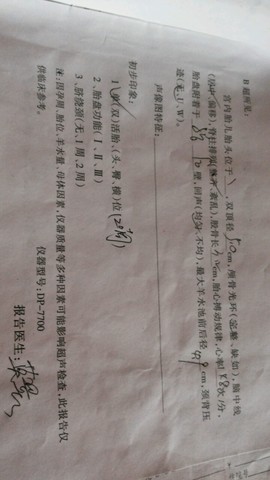 B超所见:
宫内胎儿胎头位于 双顶径 cm,颅骨光环(完整、缺如),脑中线
(居中、偏移),脊柱排列(整齐、紊乱),股骨长 cm,胎心搏动规律,心率148次/分,
胎盘附着于 壁,回声(均匀、不均),最大羊水池前后径49cm,颈背压
迹(无、U、W)。
声像图特征:
初步印象:
1、(单)(双)活胎,(头、臀、横)位(20周)
2、胎盘功能(I、II、III)
3、脐绕颈(无、1周、2周)
注:因孕周、胎位、羊水量、母体因素、仪器质量等多种因素可能影响超声检查,此报告仅
供临床参考。
仪器型号:DP-7700
报告医生: